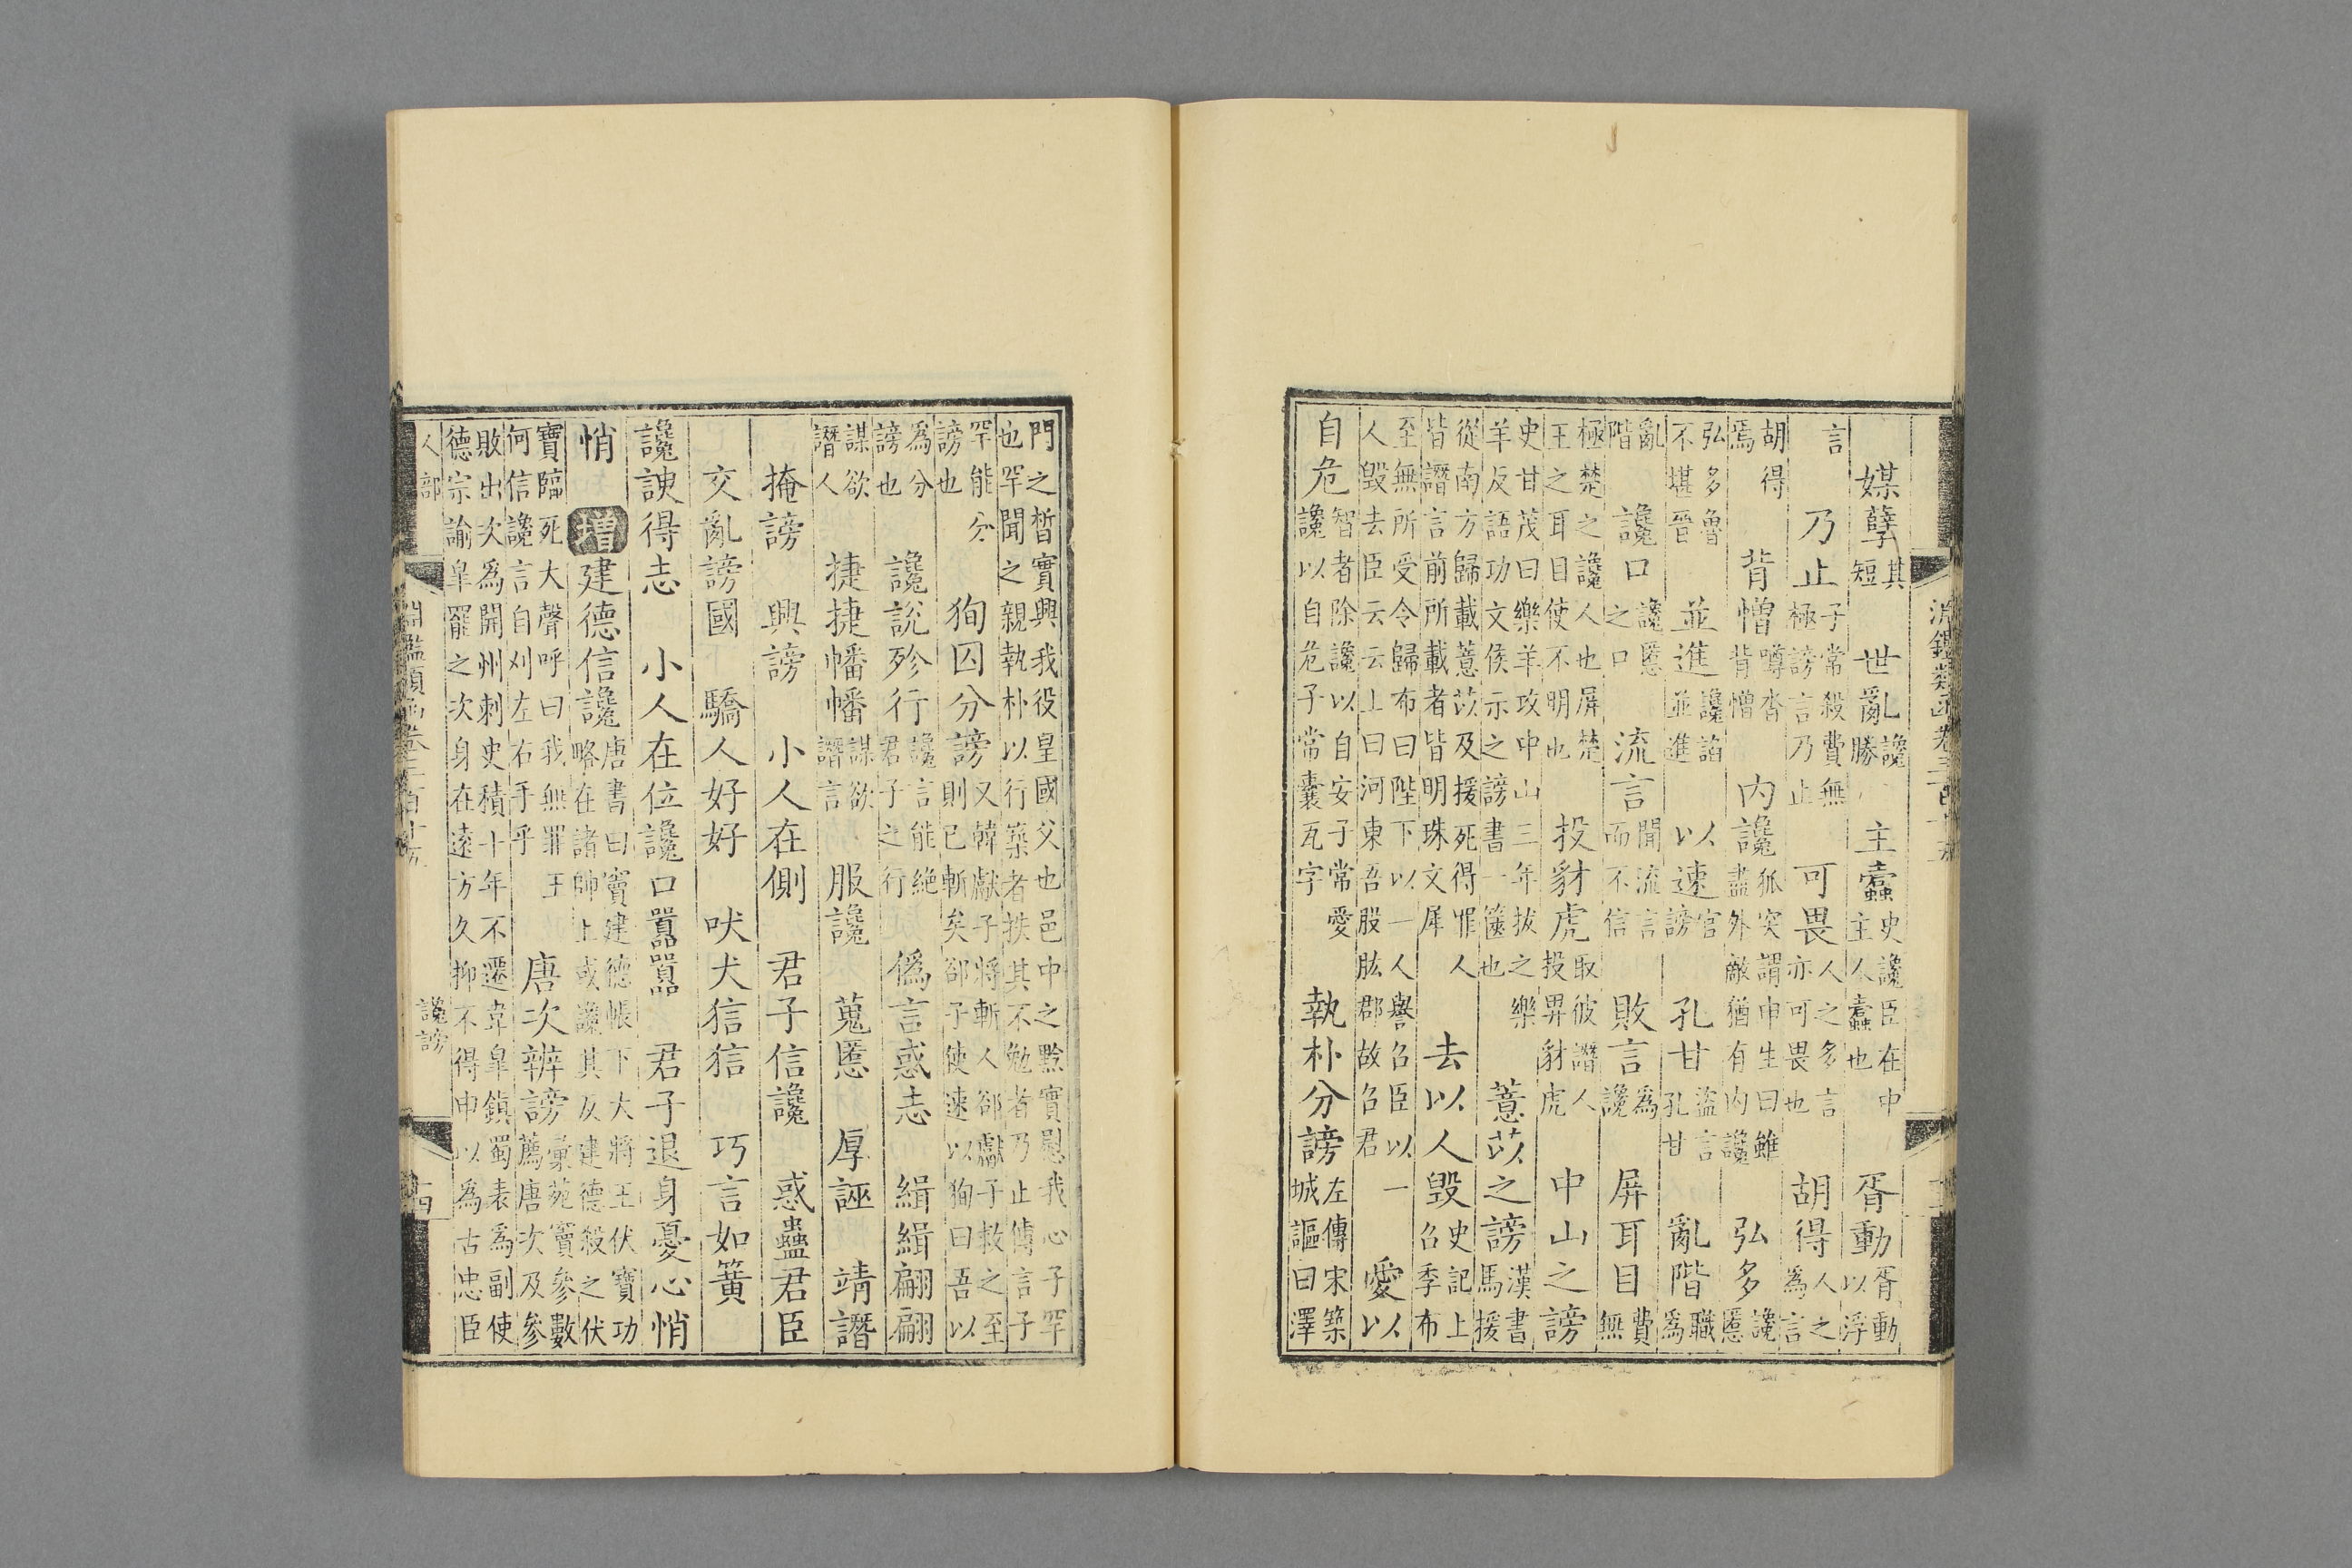 淵鑑類函卷三百十五
媒孽
其
短
世亂
讒
勝
主蠹
史讒臣在中
主人蠹也
胥動
胥動
以浮
言
乃止
子常殺費無
極謗言乃止
可畏
人之多言
亦可畏也
胡得
人之
為言
胡得
焉
背憎
噂沓
背憎
內讒
狐突謂申生曰雖
盡外敵猶有內讒
弘多
讒
慝
弘多魯
不堪晉
並進
讒諂
並進
以速
官
謗
孔甘
盜言
孔甘
亂階
職
為
亂
階
讒口
讒慝
之口
流言
聞流言
而不信
敗言
為
讒
屏耳目
費
無
極楚之讒人也屏楚
王之耳目使不明也
投豺虎
取彼譖人
投畀豺虎
中山之謗
史甘茂曰樂羊攻中山三年拔之樂
羊反語功文侯示之謗書一篋也
薏苡之謗
漢書
馬援
從南方歸載薏苡及援死得罪人
皆譖言前所載者皆明珠文犀
去以人毀
史記上
召季布
至無所受令歸布曰陛下以一人譽召臣以一
人毀去臣云云上曰河東吾股肱郡故召君
愛以
自危
智者除讒以自安子常愛
讒以自危子常囊瓦字
執朴分謗
左傳宋築
城謳曰澤
門之晳實興我役皇國父也邑中之黔實慰我心子罕
也罕聞之親執朴以行築者抶其不勉者乃止傳言子
罕能分
謗也
狥囚分謗
又韓獻子將斬人郤獻子救之至
則已斬矣郤子使速以狥曰吾以
為分
謗也
讒說殄行
讒言能絕
君子之行
偽言惑志
緝緝翩翩
謀欲
譖人
捷捷幡幡
謀欲
譖言
服讒
蒐慝
厚誣
靖譖
掩謗
興謗
小人在側
君子信讒
惑蠱君臣
交亂謗國
驕人好好
吠犬狺狺
巧言如簧
讒諛得志
小人在位讒口囂囂
君子退身憂心悄
悄
增
建德信讒
唐書曰竇建德帳下大將王伏寶功
略在諸帥上或讒其反建德殺之伏
寶臨死大聲呼曰我無罪王
何信讒言自刈左右手乎
唐次辨謗
彙苑竇參數
薦唐次及參
敗出次為開州刺史積十年不遷韋皋鎮蜀表為副使
德宗諭皋罷之次身在遠方久抑不得申以為古忠臣
人部
淵鑑類函卷三百十五
讒謗
十四